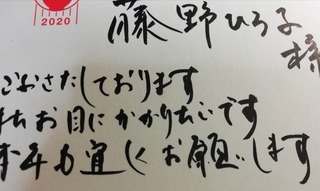 2020
藤野ひろ子様
ごぶさたしております
またお目にかかりたいです
本年も宜しくお願いします